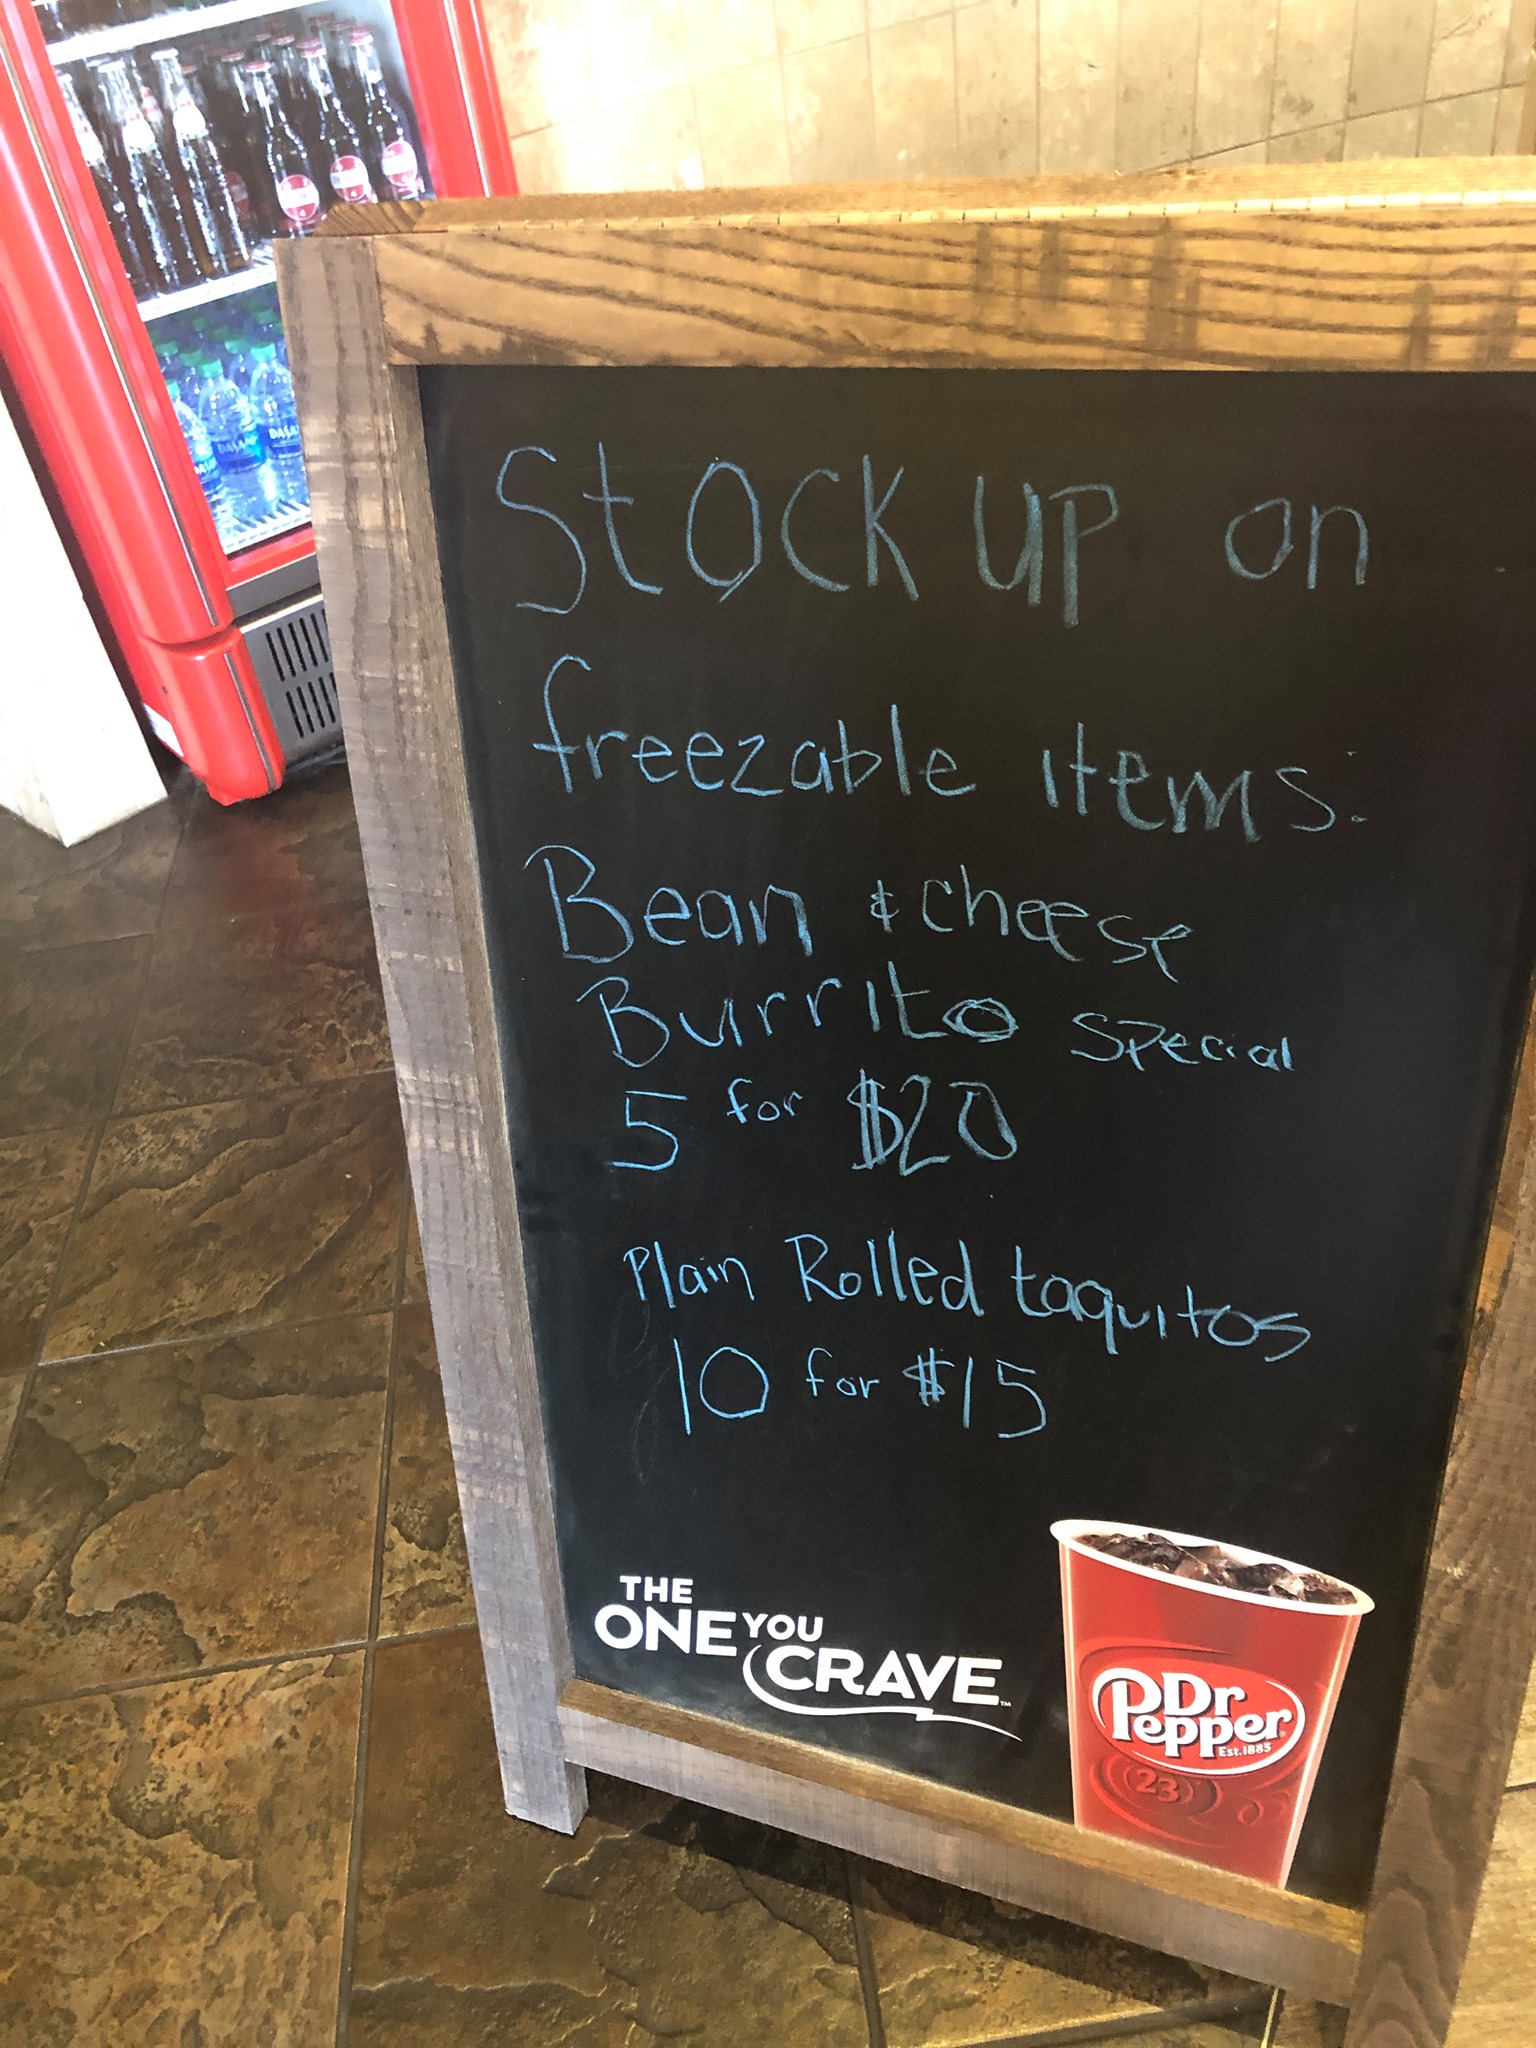 Stock up on
freezable items:
Bean & cheese
Burrito special
5 for $20
Plain Rolled taquitos
10 for $15
THE
ONE YOU
CRAVE™
Dr
Pepper
Est.1885
23
DASANI
DASANI